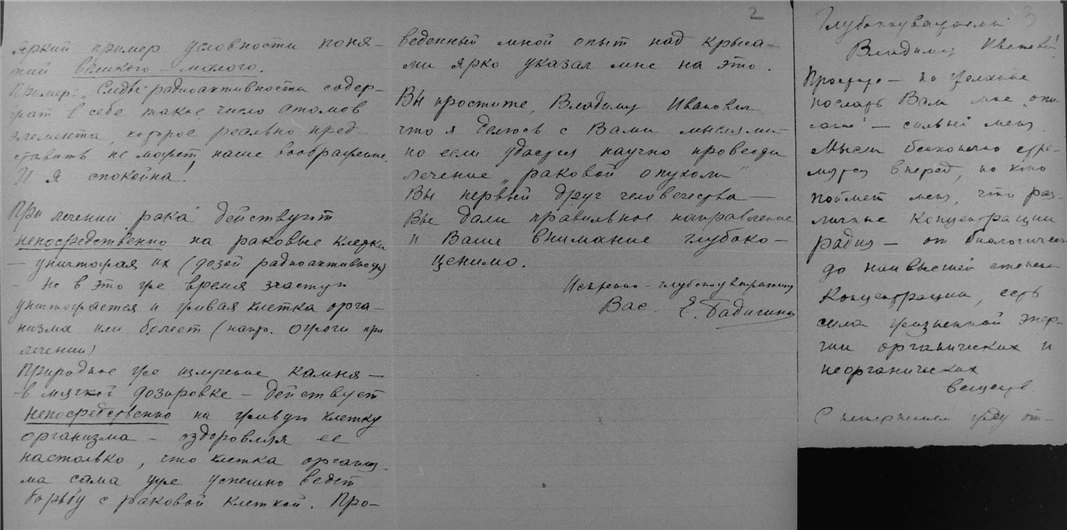 яркий пример условности поня-
тий великого – малого.
Пример: Следы радиоактивности содер-
жат в себе такое число атомов
элемента, которое реально пред-
ставить не может наше воображение.
И я спокойна!
При лечении рака действуют
непосредственно на раковые клетки
– уничтожая их (дозой радиоактивною)
– но в это же время зачастую
уничтожается и живая клетка орга-
низма или болеет (напр. ожоги при
лечении)
Природное же излучение камня –
в мягкой дозировке – действует
непосредственно на живую клетку
организма – оздоровляя ее
настолько, что клетка организ-
ма сама уже успешно ведет
борьбу с раковой клеткой. Про-
2
веденный мной опыт над крыса-
ми ярко указал мне на это.
Вы простите, Владимир Иванович
что я делюсь с Вами мыслями –
но если удастся научно провести
лечение „раковой опухоли"
Вы первый друг человечества –
Вы дали правильное направление
и Ваше внимание глубоко-
ценимо.
Искренно – глубокоуважающая
Вас Е. Бадигина
3
Глубокоуважаемый
Владимир Иванович!
послать Вам мое опи-
сание –
Мысли бесконечно стре-
мятся вперед, но кто
поймет меня, что раз-
личные концентрации
радия – от биологической
до наивысшей степени
концентрации, есть
сила жизненной энер-
гии органических и
неорганических
веществ.
С нетерпением жду от-